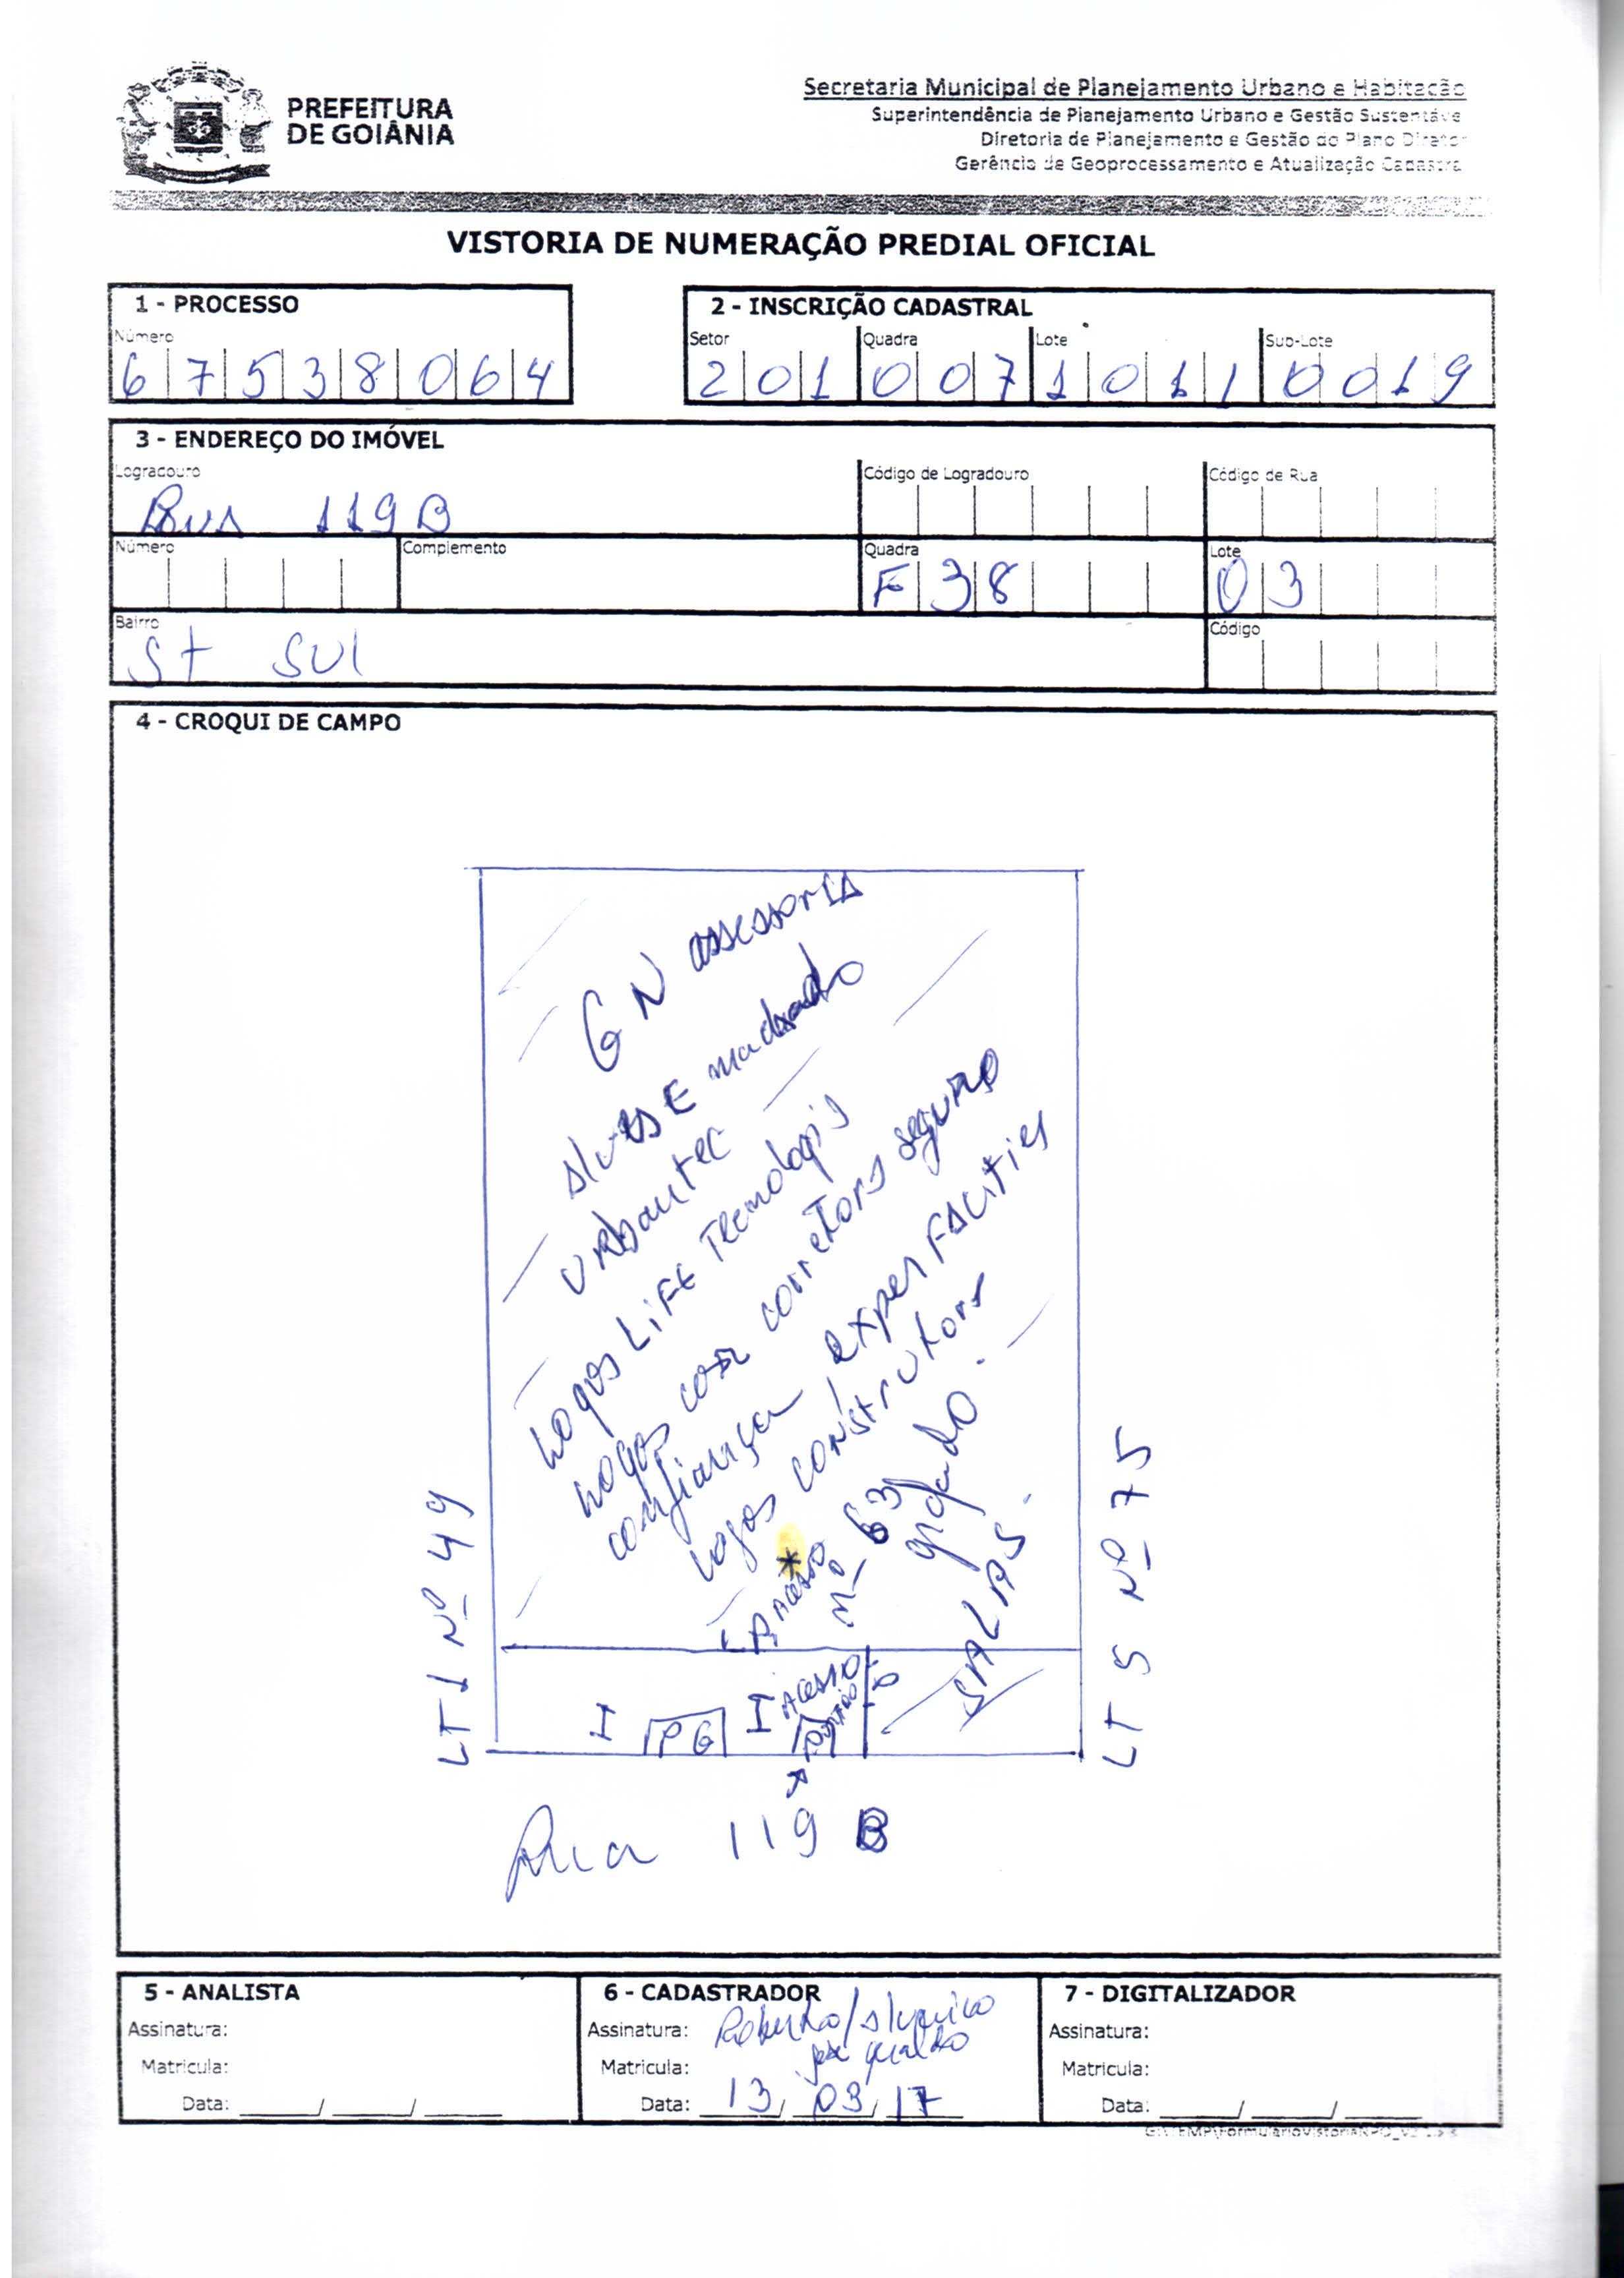 PREFEITURA
DE GOIÂNIA
Secretaria Municipal de Planejamento Urbano e Habitação
Superintendência de Planejamento Urbano e Gestão Sustentáve
Diretoria de Planejamento e Gestão do Plano Diretor
Gerência de Geoprocessamento e Atualização Cadastra
VISTORIA DE NUMERAÇÃO PREDIAL OFICIAL
1 - PROCESSO
Número
6 7 5 3 8 0 6 4
2 - INSCRIÇÃO CADASTRAL
Setor Quadra Lote Sub-Lote
2 0 1 0 0 7 1 0 1 1 0 0 1 9
3 - ENDEREÇO DO IMÓVEL
Logradouro Código de Logradouro Código de Rua
Rua 119B
Número Complemento Quadra Lote
F 3 8 0 3
Bairro Código
St SUL
4 - CROQUI DE CAMPO
GN assessoria
Alves E machado
Urbantec
Logos LiFE Tecnologis
Logos corretors seguro
confiança, exper FACities
Logos construtora
* Acesso
Nº 63
gradado.
SALAS.
LT 1 Nº 49
LT 5 Nº 75
I PG I Acesso
Portão
Rua 119 B
5 - ANALISTA
Assinatura:
Matricula:
Data: ____/____/____
6 - CADASTRADOR
Assinatura: Roberto/
Matricula:
Data: 13/03/17
7 - DIGITALIZADOR
Assinatura:
Matricula:
Data: ____/____/____